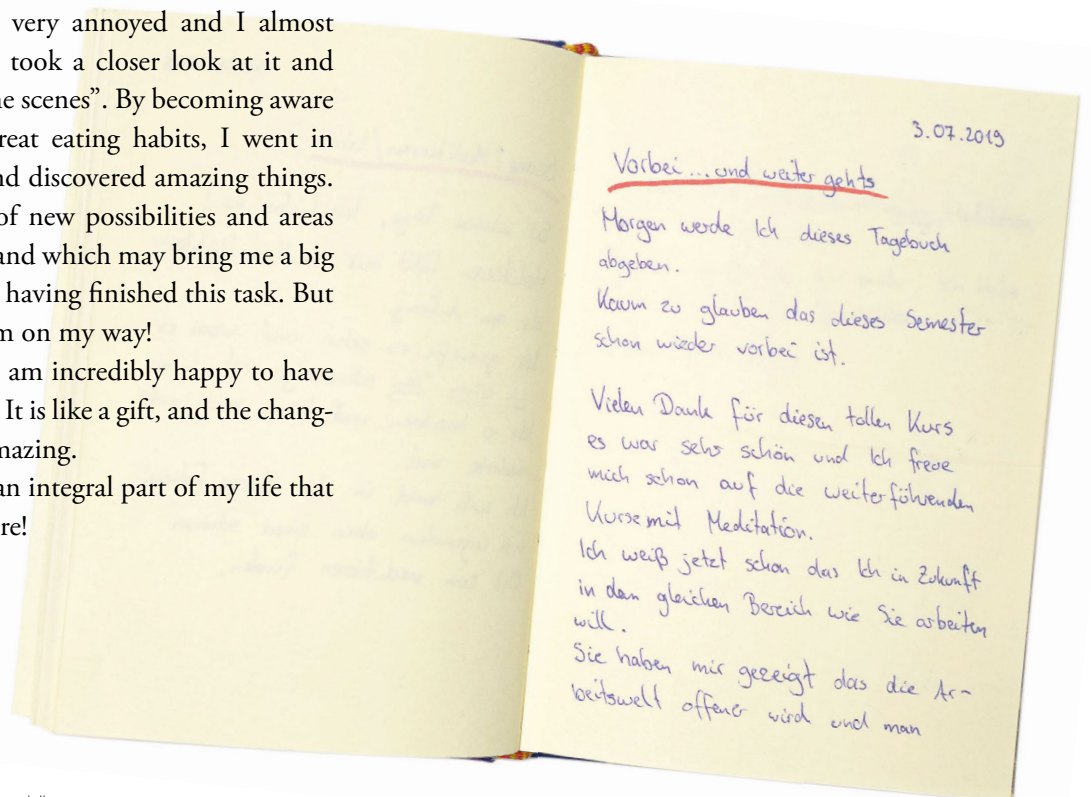 very annoyed and I almost
took a closer look at it and
e scenes”. By becoming aware
reat eating habits, I went in
nd discovered amazing things.
of new possibilities and areas
and which may bring me a big
having finished this task. But
m on my way!
am incredibly happy to have
It is like a gift, and the chang-
mazing.
an integral part of my life that
re!
3.07.2019
Vorbei ... und weiter gehts
Morgen werde Ich dieses Tagebuch
abgeben.
Kaum zu glauben das dieses Semester
schon wieder vorbei ist.
Vielen Dank für diesen tollen Kurs
es war sehr schön und Ich freue
mich schon auf die weiterführenden
Kurse mit Meditation.
Ich weiß jetzt schon das Ich in Zukunft
in dem gleichen Bereich wie Sie arbeiten
will.
Sie haben mir gezeigt das die Ar-
beitswelt offener wird und man